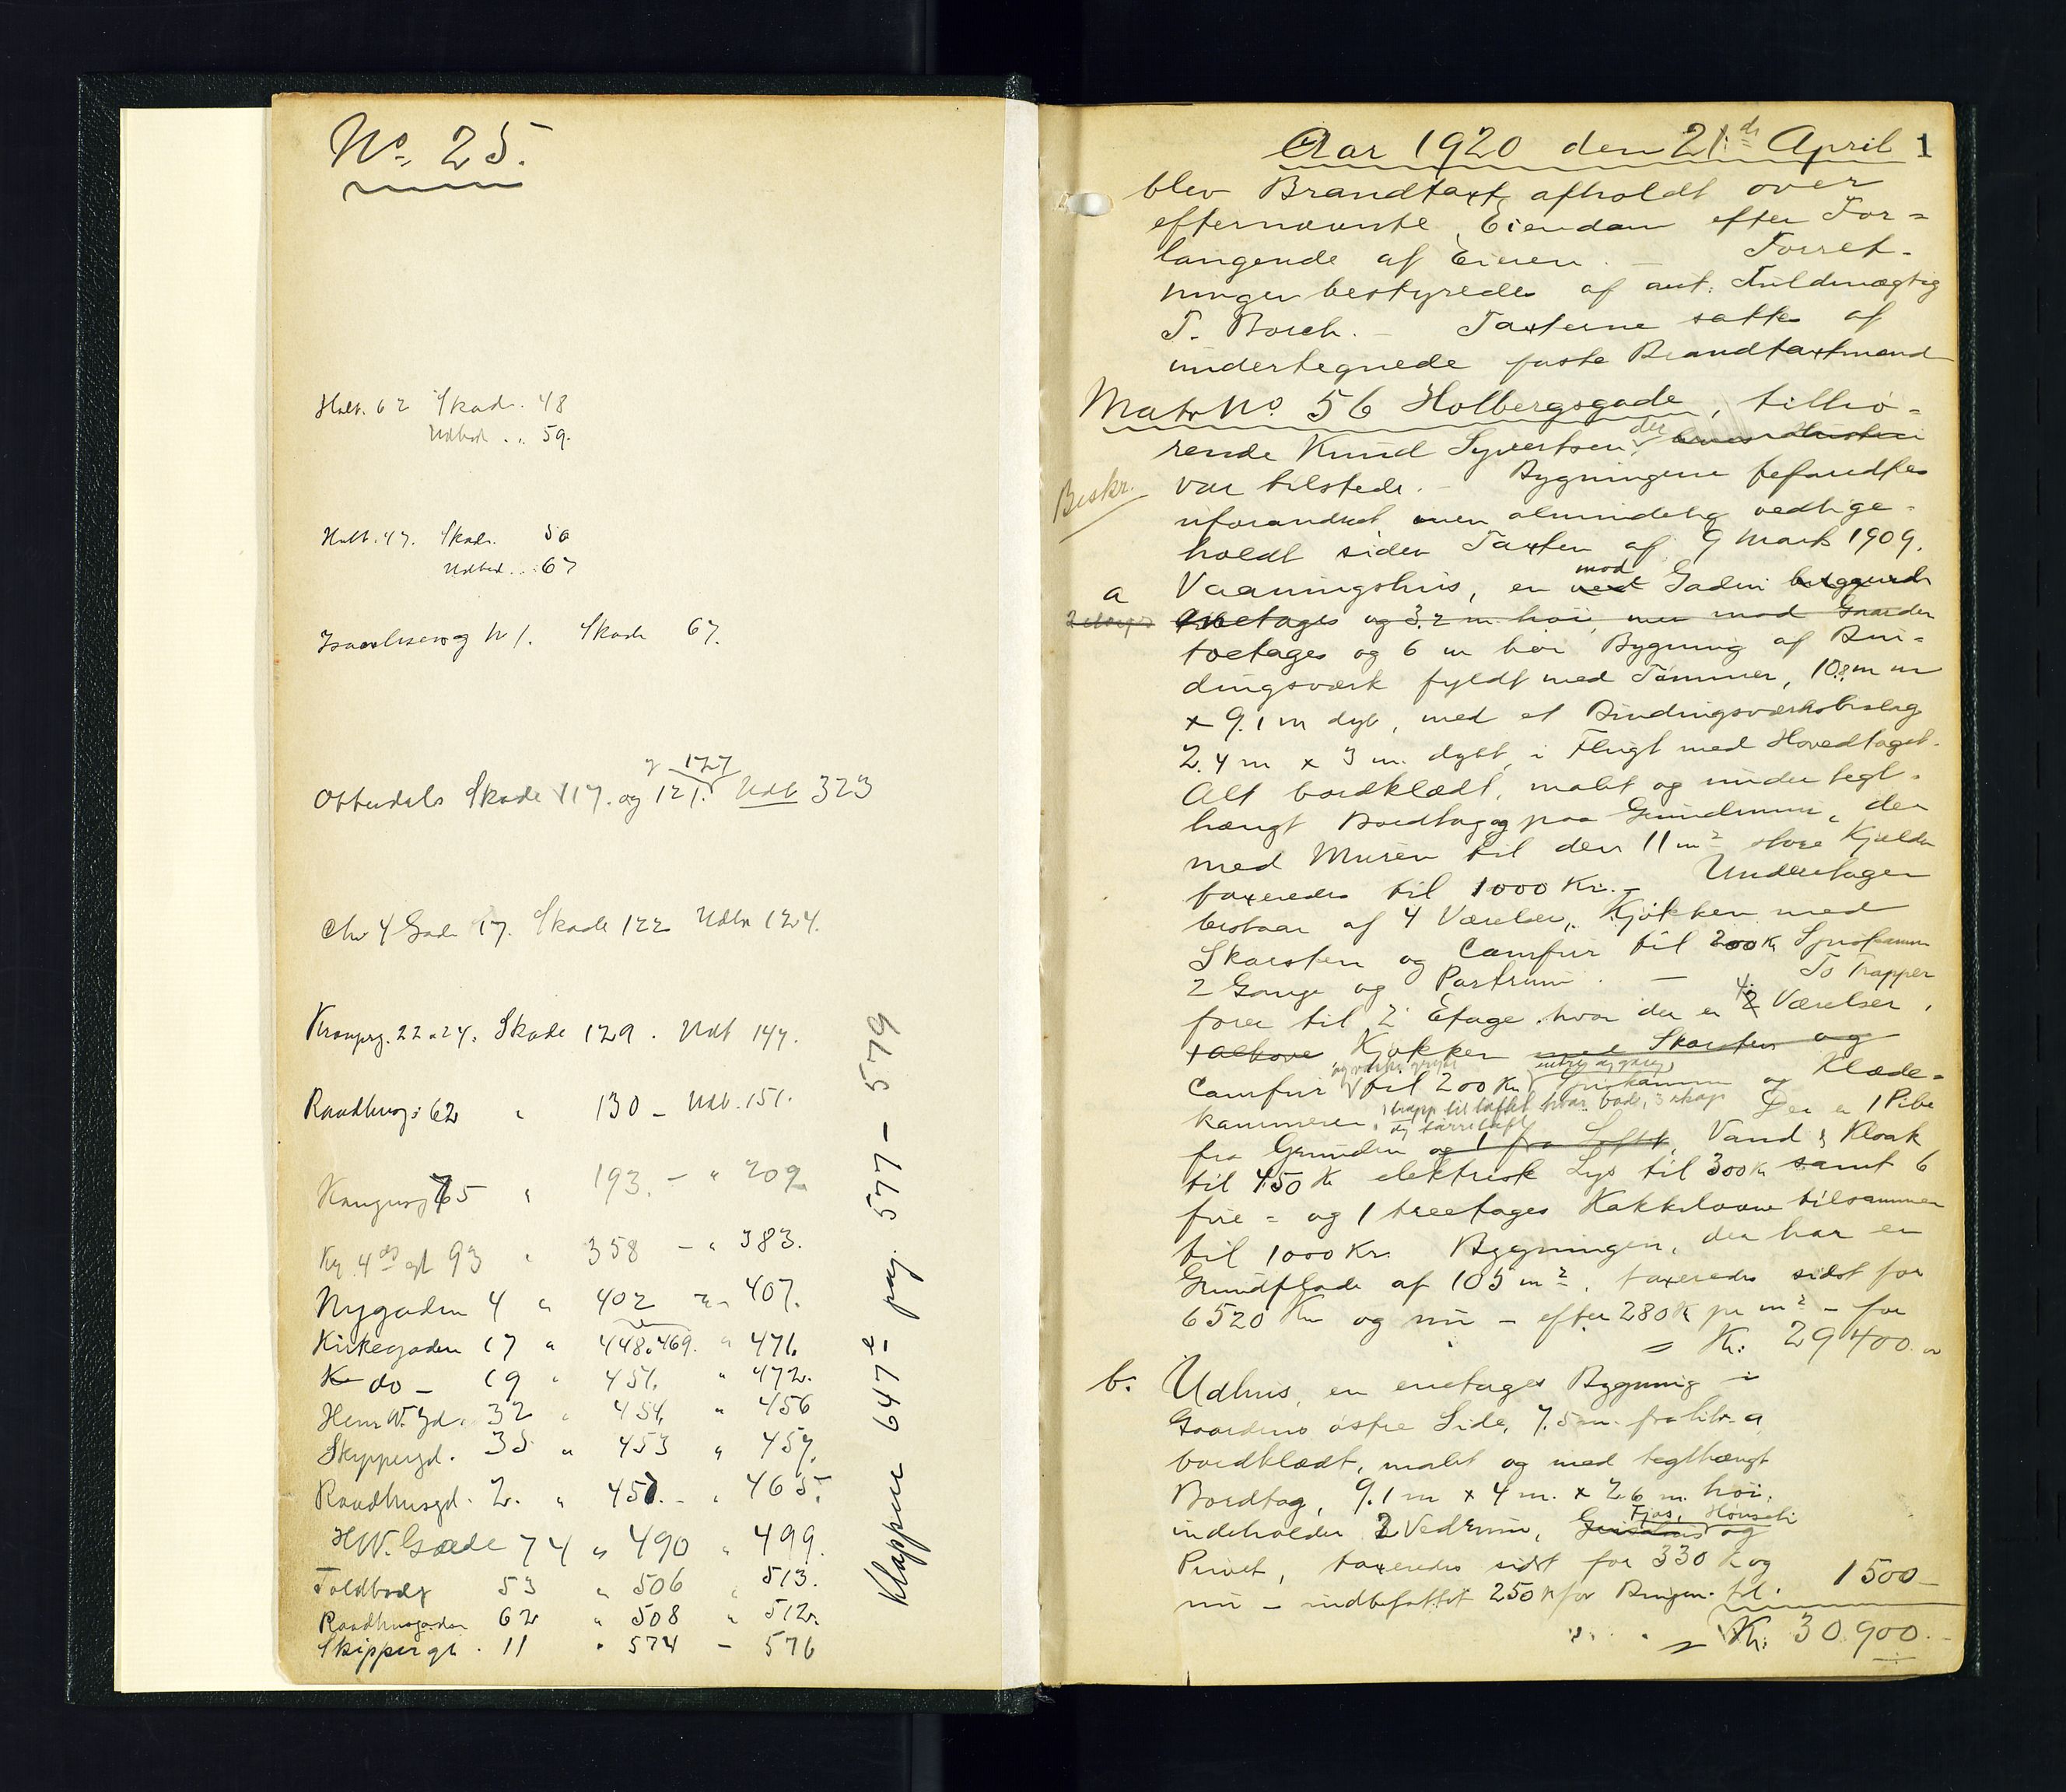 No. 25.
Holb. 62 Skade. 48
Udbed. .. 59.
Holb. 47. Skade. 56
Udbed. .. 67
W 1. Skade 67.
og 127
Otterdals Skade 117. og 121. Udb 323
Chr 4 Gade 17. Skade 122 Udbr 124.
Kronprg. 22 & 24. Skade 129. Udb 144.
Raadhusg. 62 " 130 - Udb. 151.
Kongensg 75 " 193. - " 209
Kg. 4des gt 93 " 358 - " 383.
Nygaden 4 " 402 " 407.
Kirkegaden 17 " 448.469. " 471.
K do - 19 " 451. " 472.
Henr W. gd. 32 " 454, " 456
Skippergd. 35 " 453 " 457.
Raadhusgd. 2. " 457. - " 465.
HW. Gade 74 " 490 " 499.
Toldbodg 53 " 506 " 513.
Raadhusgaden 62 " 508 " 512.
Skippergt. 11 " 574 - 576
Klappene 647 pag. 577 - 579
Aar 1920 den 21de April 1
blev Brandtaxt afholdt over
efternævnte Eiendom efter For=
langende af Eieren. - Forret-
ningen bestyredes af aut. Fuldmægtig
T. Borch. - Taxterne sattes af
undertegnede faste Brandtaxtmænd
Matr No. 56 Holbergsgade, tilhø-
rende Knud Syvertsen, der hvis Hustru
Beskr.
var tilstede. - Bygningene befandtes
uforandret, men almindelig vedlige-
holdt siden Taxten af 9 Marts 1909.
a Vaaningshus, en ved mod Gaden beliggende
2 etages enetages og 3.2 m. høi, men mod Gaarden
toetages og 6 m høi Bygning af Bin-
dingsværk fyldt med Tømmer, 10.8 m
x 9.1 m dyb, med et Bindingsværksbislag
2.4 m x 3 m. dybt, i Flugt med Hovedtaget.
Alt bordklædt, malet og under tegl-
hængt Bordtag og paa Grundmur, der
med Muren til den 11 m2 store Kjelder
taxeredes til 1000 Kr. - Underetagen
bestaar af 4 Værelser, Kjøkken med
Skorsten og Camfur til 200 Kr Spiskammer
2 Gange og Portrum. - To Trapper
fører til 2 Etage hvor der er 4 2 Værelser,
1 alkove Kjøkken med Skorsten og
Camfur til 200 Kr, entre og gang Spiskammer og Klæde-
kammer. 1 trapp til loftet hvor bod, 3 skap og tørreloft Der er 1 Pibe
fra Grunden og 1 fra Loftet, Vand & Kloak
til 450 Kr elektrisk Lys til 300 Kr samt 6
fire = og 1 treetages Kakkelovne tilsammen
til 1000 Kr. Bygningen, der har en
Grundflade af 105 m2, taxeredes sidst for
6520 Kr og nu - efter 280 Kr pr m2 - for
= Kr. 29400.
b. Udhus, en enetages Bygning i
Gaardens østre Side, 7.5 m. fra litr. a,
bordklædt, malet og med teglhængt
Bordtag, 9.1 m x 4 m. x 2.6 m. høi,
indeholder 2 Vedrum, Fjøs, Hønseh og
Privet, taxeredes sidst for 330 Kr og
nu - indbefattet 250 Kr for Bingen til. 1500-
= Kr. 30,900.-